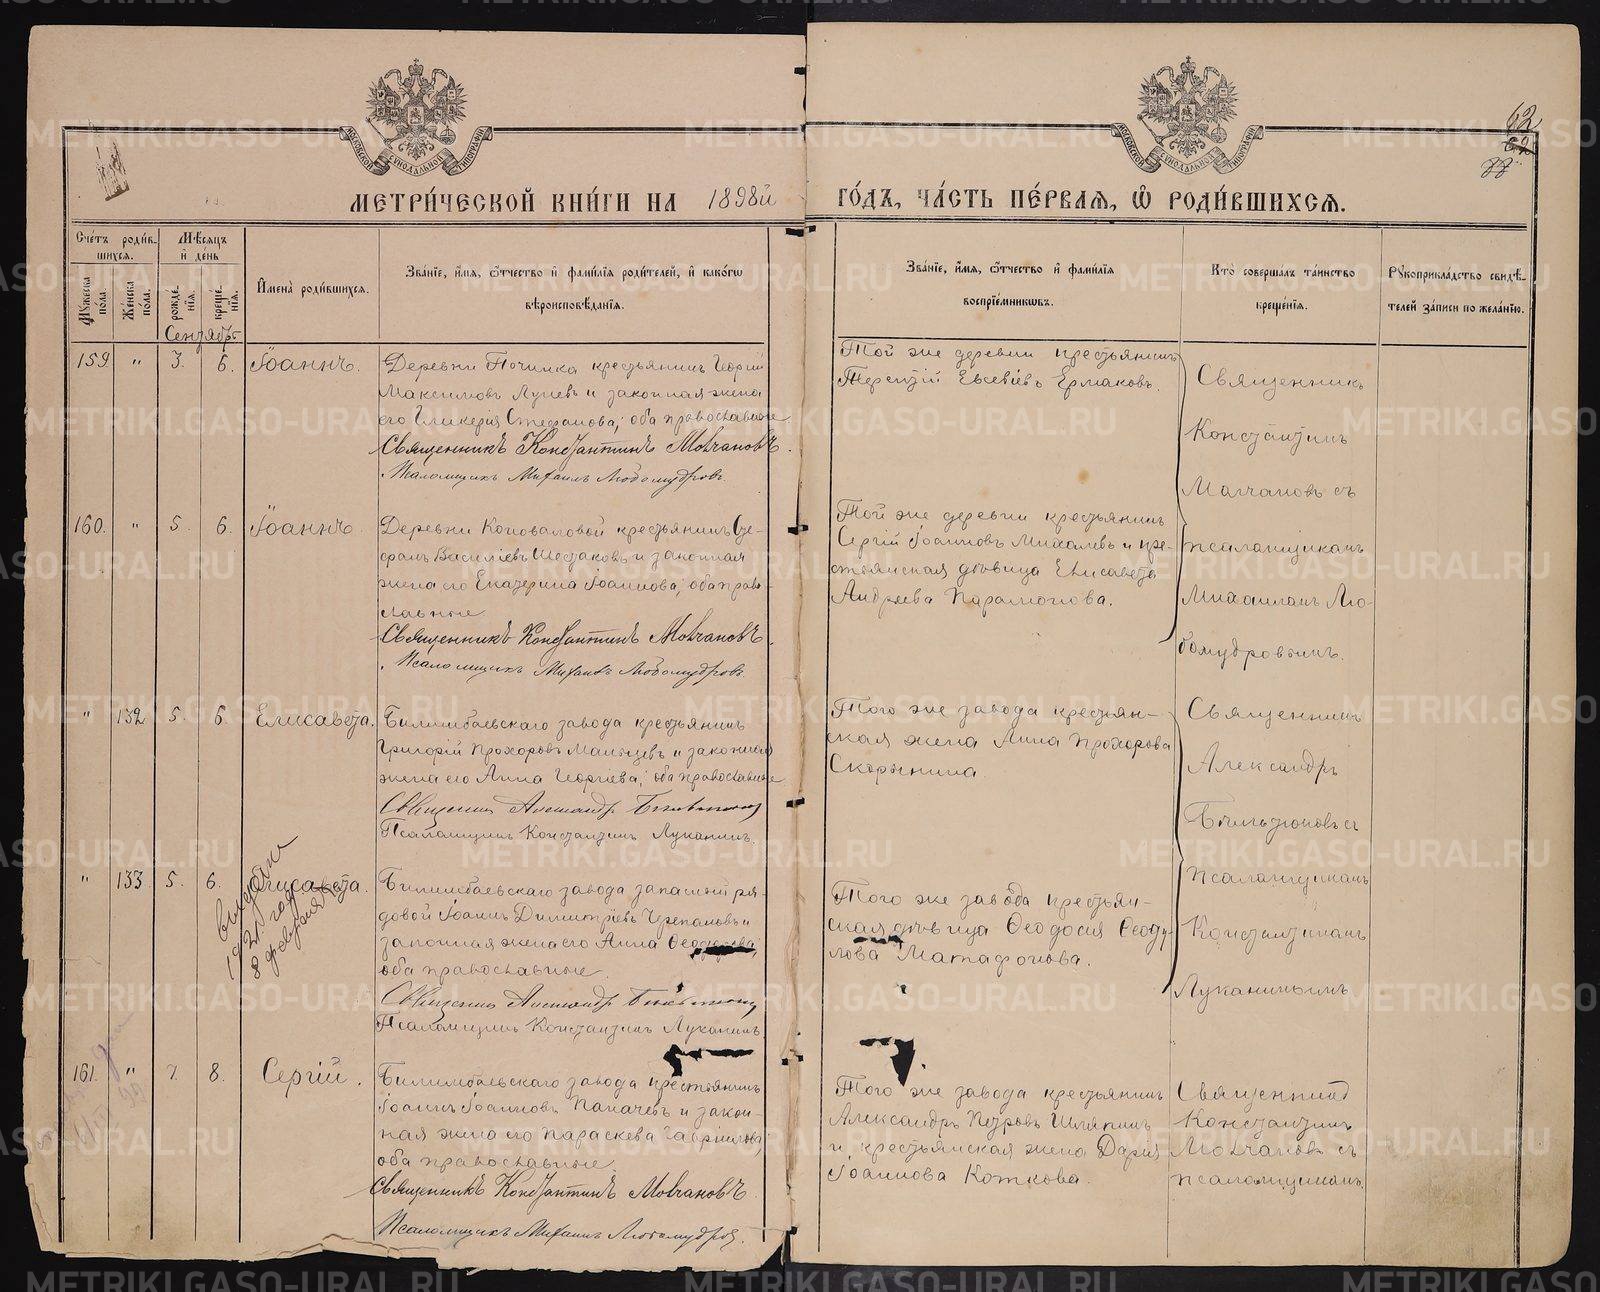 МЕТРИ́ЧЕСКОЙ КНИ́ГИ НА 1898й
ГО́ДЪ, ЧА́СТЬ ПЕ́РВАѦ, Ѿ РОДИ́ВШИХСѦ.
62
Сче́тъ роди́в-
шихсѧ.
Мѣ́сѧцъ
и҆ де́нь
Мꙋ́жеска по́ла.
Же́нска по́ла.
рожде́нїѧ.
креще́нїѧ.
И҆мена̀ роди́вшихсѧ.
Зва́нїе, и҆́мѧ, ѻ҆́тчество и҆ фами́лїѧ роди́телей, и҆ како́гѡ
вѣроисповѣ́данїѧ.
Зва́нїе, и҆́мѧ, ѻ҆́тчество и҆ фами́лїѧ
воспрїе́мникѡвъ.
Кто̀ соверша́лъ та́инство
креще́нїѧ.
Рꙋкоприкла́дство свидѣ́-
телей за́писи по жела́нїю.
Сентябрь
159 " 3. 6. Іоаннъ.
Деревни Починка крестьянинъ Георгій
Максимовъ Лушевъ и законная жена
его Гликерія Стефанова; оба православные
Священникъ Константинъ Молчановъ.
Псаломщикъ Михаилъ Любомудровъ.
Той же деревни крестьянинъ
Терентій Евсевіевъ Ермаковъ.
Священникъ
Константинъ
Молчановъ съ
псаломщикомъ
Михаиломъ Лю-
бомудровымъ.
160. " 5. 6. Іоаннъ.
Деревни Коноваловой крестьянинъ Сте-
фанъ Василіевъ Шестаковъ и законная
жена его Екатерина Іоаннова; оба право-
славные
Священникъ Константинъ Молчановъ.
Псаломщикъ Михаилъ Любомудровъ.
Той же деревни крестьянинъ
Сергій Іоанновъ Михалевъ и кре-
стьянская дѣвица Елисавета
Андреева Парамонова.
" 132 5. 6. Елисавета.
Билимбаевскаго завода крестьянинъ
Григорій Прохоровъ Мальцевъ и законная
жена его Анна Георгіева; оба православные
Священникъ Александръ
Псаломщикъ Константинъ Луканинъ.
Того же завода крестьян-
ская жена Анна Прохорова
Скорынина.
Священникъ
Александръ
съ
псаломщикомъ
Константиномъ
Луканинымъ
" 133 5. 6. Елисавета.
1921 год
8 февраля
Билимбаевскаго завода запасный ря-
довой Іоаннъ Димитріевъ Черепановъ и
законная жена его Анна
оба православные.
Священникъ Александръ
Псаломщикъ Константинъ Луканинъ
Того же завода крестьян-
ская дѣвица Ѳеодосія Ѳеоду-
лова Матафонова.
161. " 7. 8. Сергій.
Билимбаевскаго завода крестьянинъ
Іоаннъ Іоанновъ Папачевъ и закон-
ная жена его Параскева Гавріилова,
оба православные.
Священникъ Константинъ Молчановъ.
Псаломщикъ Михаилъ Любомудровъ.
Того же завода крестьянинъ
Александръ Петровъ Шляпинъ
и крестьянская жена Дарія
Іоаннова Коткова.
Священникъ
Константинъ
Молчановъ съ
псаломщикомъ
METRIKI.GASO-URAL.RU